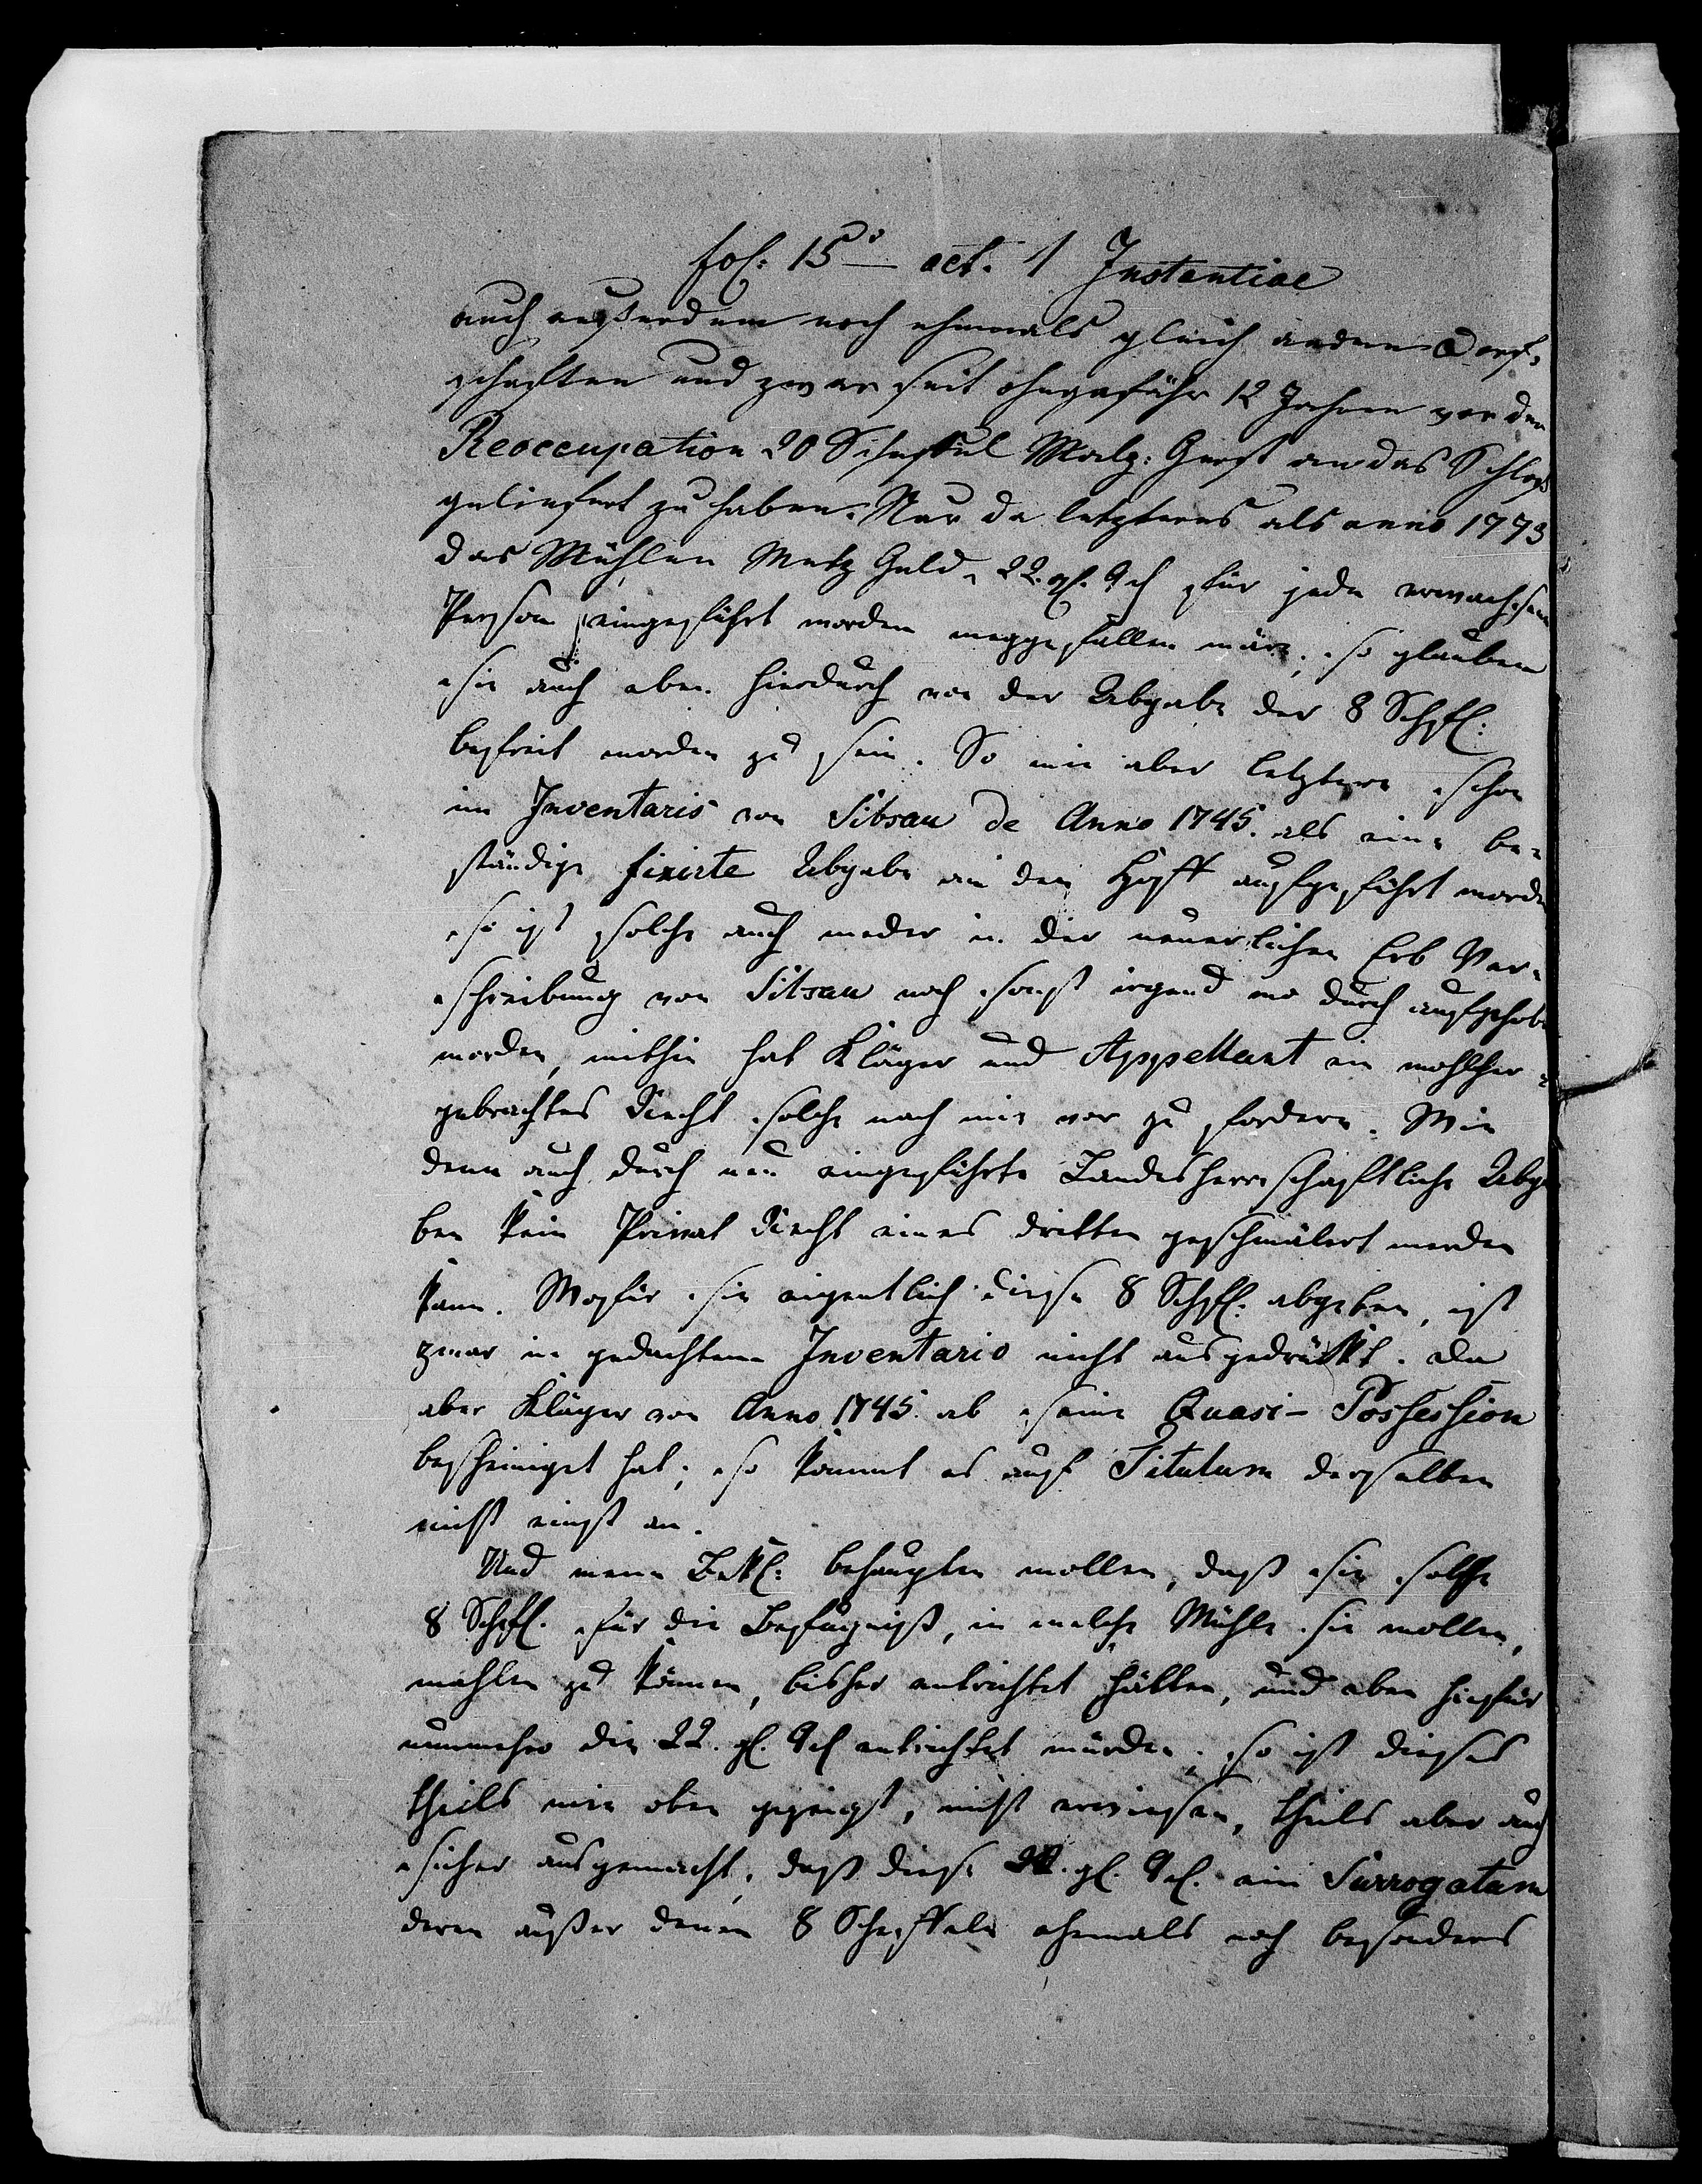 fol: 15 act. 1 Instantiae
auch außerdem noch ehemals gleich andern Dorf-
schaften und zwar seit ohngefähr 12 Jahren vor der
Reoccupation 20 Scheffel Malz: Gerst an das Schloß
geliefert zu haben. Nur da letzteres als anno 1773
das Mühlen Metz Geld, 22. gl. 9 d für jede erwachsene
Person eingeführt worden weggefallen wäre; so glauben
sie auch eben hierdurch von der Abgabe der 8 Schfl:
befreit worden zu sein. So wie aber letztere schon
im Inventario von Sibsau de Anno 1745. als eine be-
ständige fixirte Abgabe an den Hoff aufgeführt worden
so ist solche auch weder in der neuerlichen Erb Ver-
schreibung von Sibsau noch sonst irgend wo durch aufgehoben
worden, mithin hat Kläger und Appellant ein wohlher-
gebrachtes Recht solche nach wie vor zu fordern. Wie
denn auch durch neu eingeführte Landesherrschaftliche Abga
ben kein Privat Recht eines dritten geschmälert werden
kann. Wofür sie eigentlich diese 8 Schfl. abgeben, ist
zwar in gedachtem Inventario nicht ausgedrückt. da
aber Kläger von Anno 1745. ab seine Quasi- Possession
bescheiniget hat; so kommt es auf Titulum derselben
nicht einst an.
Und wenn Bekl: behaupten wollen, daß sie solche
8 Schfl. für die Befugniß, in welche Mühle sie wollen,
mahlen zu können, bisher entrichtet hätten, und eben hiefür
nunmehro die 22. gl. 9 d entrichtet würden; so ist dieses
theils wie oben gezeigt, nicht erwiesen, theils aber auch
sicher ausgemacht, daß diese 22. gl. 9 d. ein Surrogatum
deren außer denen 8 Scheffeln ehemals noch besonders